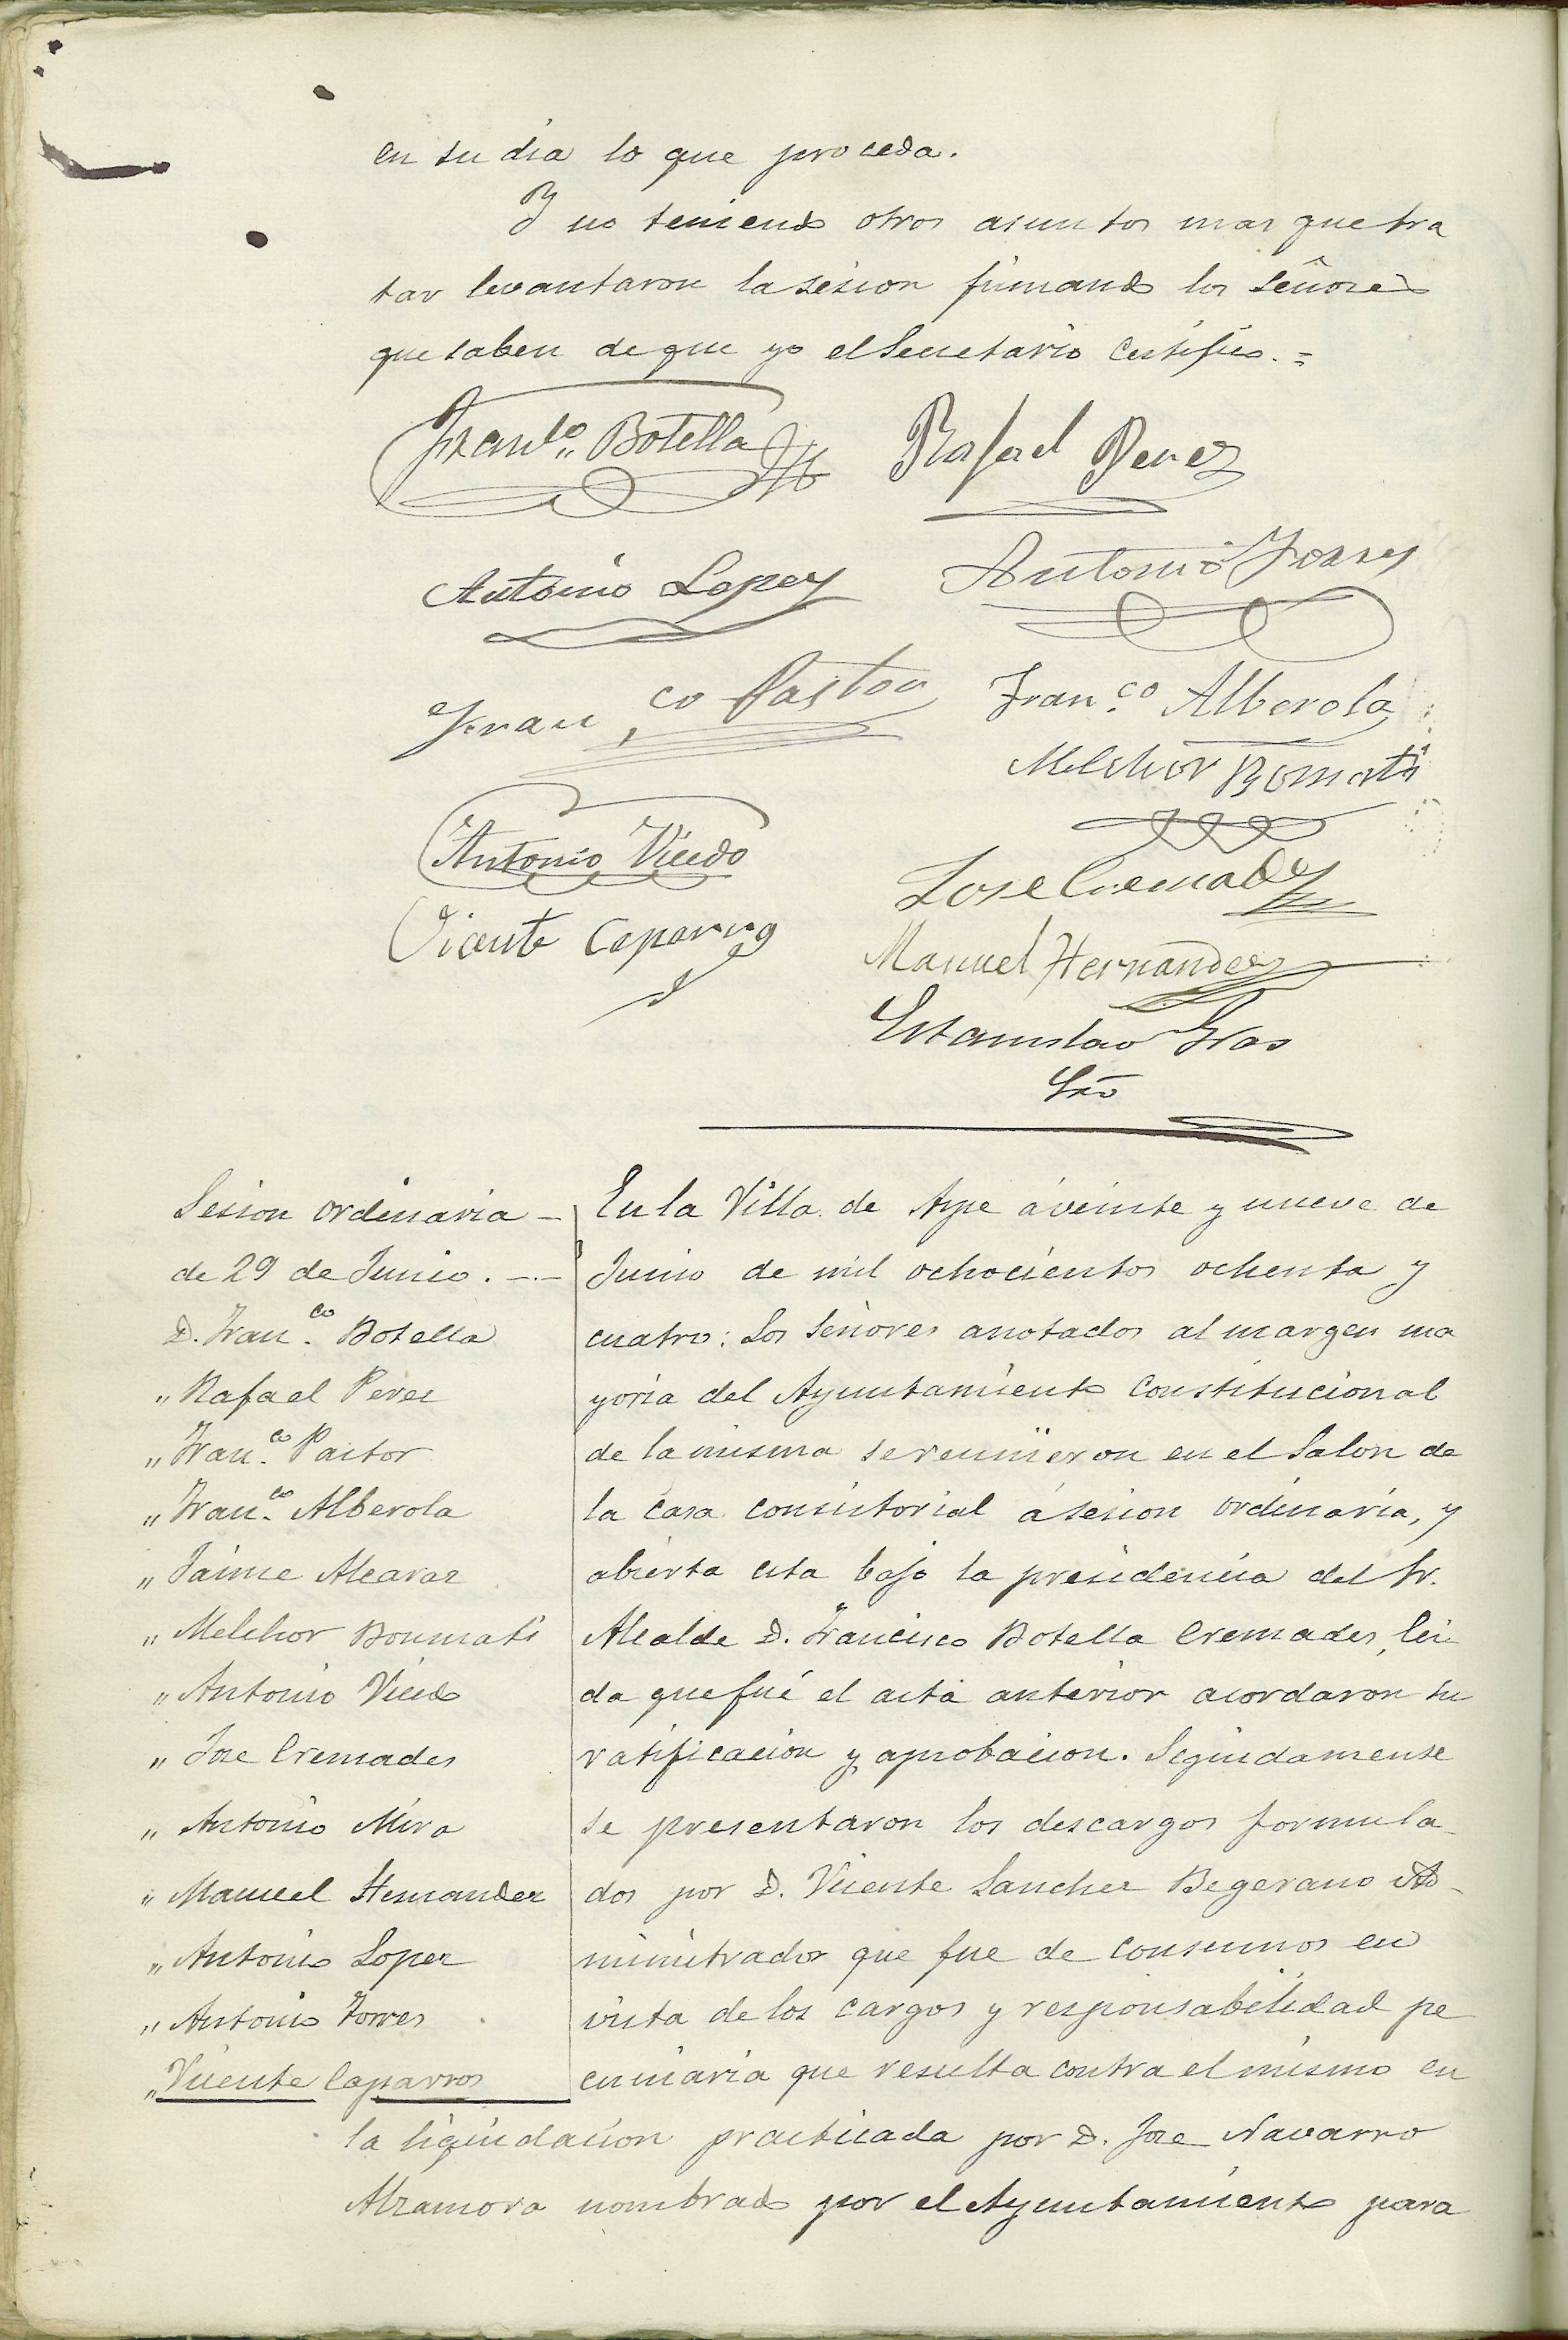 en su dia lo que proceda.
Y no teniendo otros asuntos mas que tra
tar levantaron la sesion firmando los Señores
que saben de que yo el Secretario certifico.=
Franco. Botella
Rafael Perez
Antonio Lopez
Antonio Torres
Fran,co Pastor
Fran.co Alberola
Melchor Bomati
Antonio Vicedo
Jose Cremades
Vicente Caparros
Manuel Hernandez
Estanislao Gras
Srio
Sesion ordinaria —
de 29 de Junio. —.—
D. Fran.co Botella
„ Rafael Perez
„ Fran.co Pastor
„ Fran.co Alberola
„ Jaime Alcaraz
„ Melchor Boumati
„ Antonio Vicedo
„ Jose Cremades
„ Antonio Mira
„ Manuel Hernandez
„ Antonio Lopez
„ Antonio Torres
„ Vicente Caparros
En la Villa de Aspe á veinte y nueve de
Junio de mil ochocientos ochenta y
cuatro: Los Señores anotados al margen ma
yoria del Ayuntamiento Constitucional
de la misma se reunieron en el Salon de
la casa consistorial á sesion ordinaria, y
abierta esta bajo la presidencia del Sr.
Alcalde D. Francisco Botella Cremades, lei-
da que fué el acta anterior acordaron su
ratificacion y aprobacion. Seguidamente
se presentaron los descargos formula-
dos por D. Vicente Sanchez Begerano Ad-
ministrador que fue de consumos en
vista de los cargos y responsabilidad pe
cuniaria que resulta contra el mismo en
la liquidacion practicada por D. Jose Navarro
Alzamora nombrado por el Ayuntamiento para